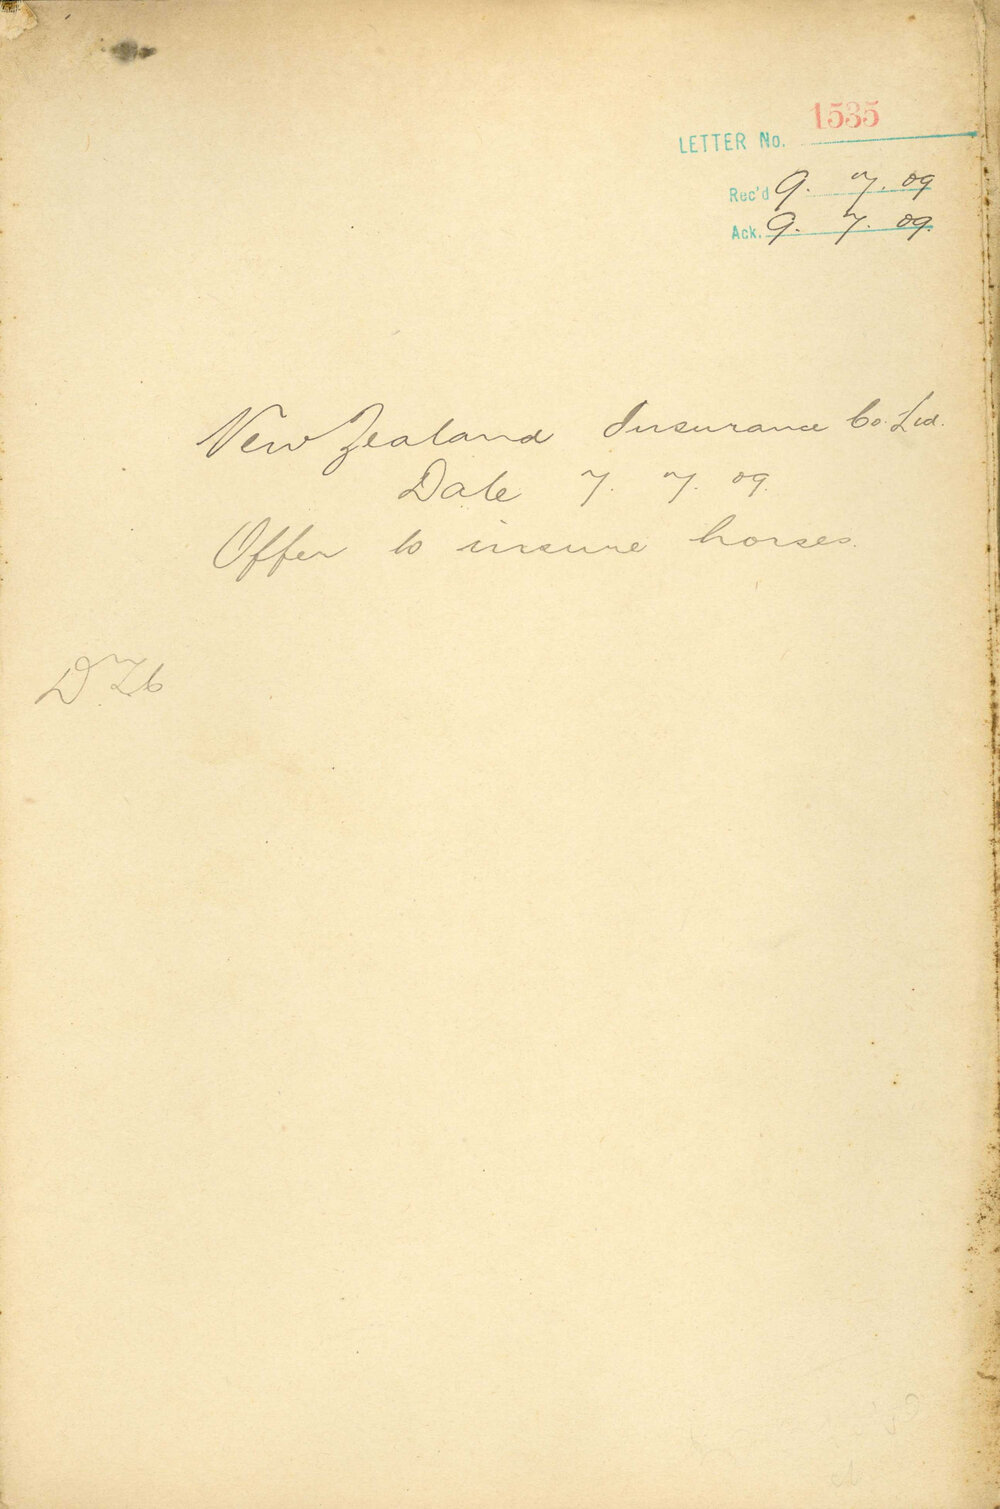 LETTER No. 1535
Rec'd 9. 7. 09
Ack. 9. 7. 09.
New Zealand Insurance Co. Ltd.
Date 7. 7. 09.
Offer to insure horses.